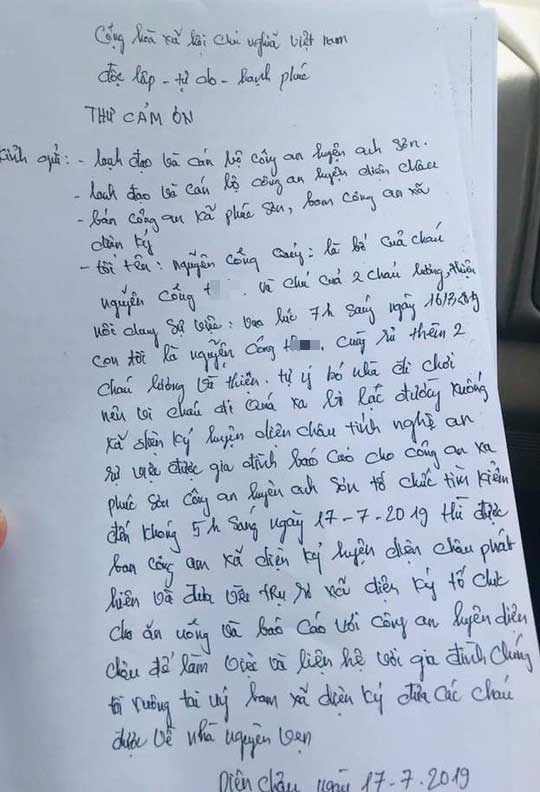 Cộng hòa xã hội chủ nghĩa việt nam
độc lập - tự do - hạnh phúc
THƯ CẢM ƠN
Kính gửi: - lạnh đạo và cán bộ công an huyện anh sơn.
- lạnh đạo và cán bộ công an huyện diễn châu
- bán công an xã phúc sơn, ban công an xã
diễn kỷ
- tôi tên: nguyễn công quý: là bố của cháu
nguyễn công t và chú của 2 cháu lương, thiện
nôi dung sự việc: vào lúc 7h sáng ngày
con tôi là nguyễn công th. cùng rủ thêm 2
cháu lương và thiện. tự ý bỏ nhà đi chơi
nên vì cháu đi quá xa bị lạc đường xuống
xã diễn kỷ huyện diễn châu tỉnh nghệ an
sự việc được gia đình báo cáo cho công an xa
phúc sơn công an huyện anh sơn tổ chức tìm kiếm
đến khoảng 5h sáng ngày 17-7-2019 thì được
ban công an xã diễn kỷ huyện diễn châu phát
hiện và đưa về trụ sở xã diễn kỷ tổ chức
cho ăn uống và báo cáo với công an huyện diễn
châu để làm việc và liên hệ với gia đình chúng
tôi xuống tại uỷ ban xã diễn kỷ đưa các cháu
được về nhà nguyên vẹn
Diễn Châu, ngày 17-7-2019